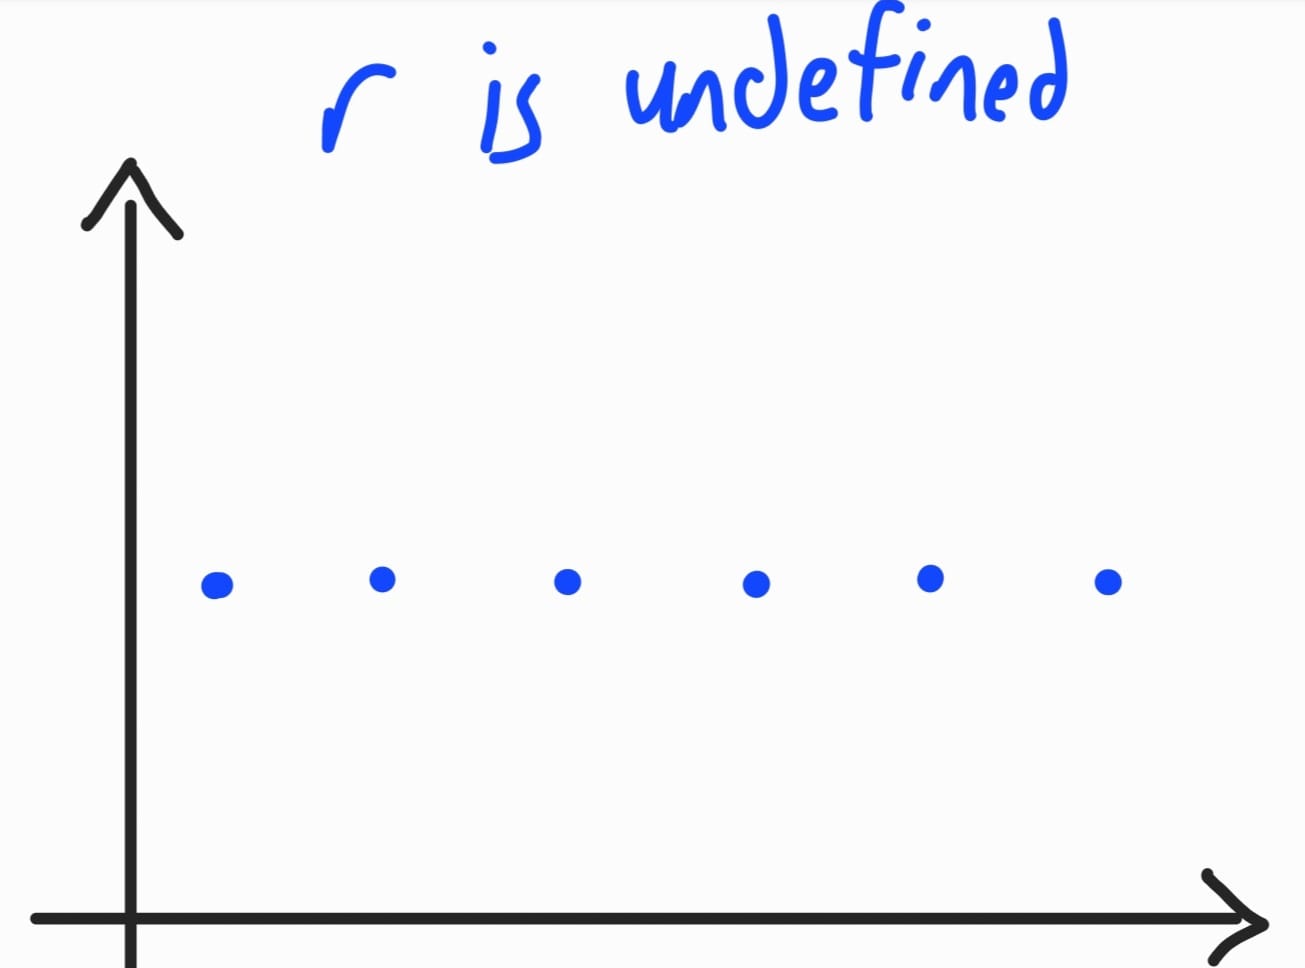 r is undefined